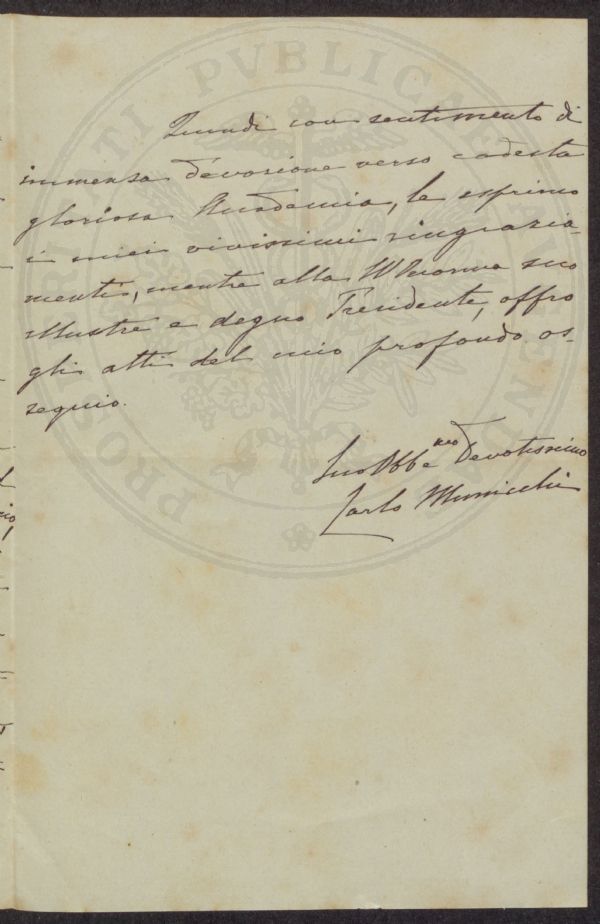 Quindi con sentimento di
immensa devozione verso codesta
gloriosa Accademia, le esprimo
i miei vivissimi ringrazia-
menti, mentre alla S. V. suo
illustre e degno Presidente, offro
gli atti del mio profondo os-
sequio.
Suo Obb.mo Devotissimo
Carlo Minnicelli
PROSPERITATI PVBLICAE AVGENDAE